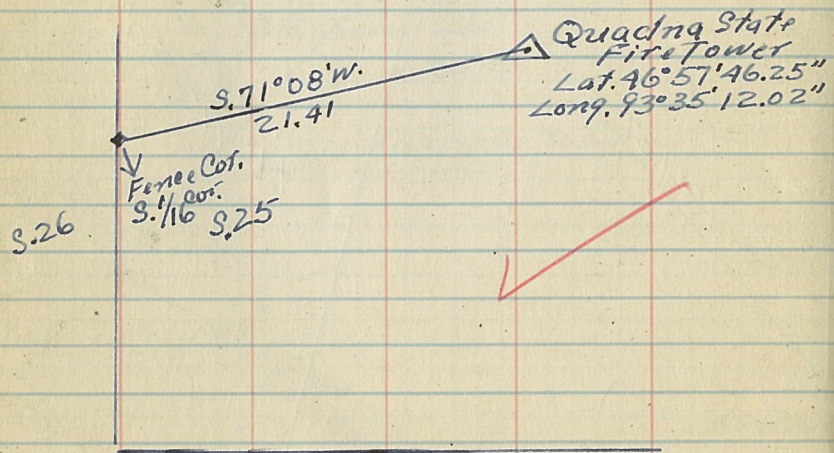 Quadna State
Fire Tower
Lat. 46°57'46.25"
Long. 93°35'12.02"
S.71°08'W.
21.41
Fence Cor.
S.1/16 cor.
S.26
S.25